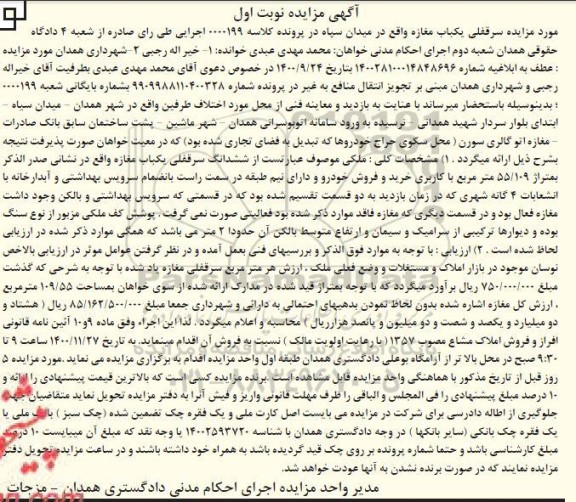 آگهی مزایده نوبت اول
مورد مزایده سرقفلی یکباب مغازه واقع در میدان سپاه در پرونده کلاسه ۰۰۰۰۱۹۹ اجرایی طی رای صادره از شعبه ۴ دادگاه
حقوقی همدان شعبه دوم اجرای احکام مدنی خواهان: محمد مهدی عبدی خوانده: ۱- خیر اله رجبی ۲-شهرداری همدان مورد مزایده
: عطف به ابلاغیه شماره ۱۴۰۰۲۸۱۰۰۰۱۴۸۴۸۶۹۶ بتاریخ ۱۴۰۰/۹/۲۴ در خصوص دعوی آقای محمد مهدی عبدی بطرفیت آقای خیراله
رجبی و شهرداری همدان مبنی بر تجویز انتقال منافع به غیر در پرونده شماره ۹۹۰۹۹۸۸۱۱۰۴۰۰۳۲۸ بشماره بایگانی شعبه ۰۰۰۰۱۹۹
؛ بدینوسیله باستحضار میرساند با عنایت به بازدید و معاینه فنی از محل مورد اختلاف طرفین واقع در شهر همدان - میدان سپاه -
ابتدای بلوار سردار شهید همدانی - نرسیده به ورود سامانه اتوبوسرانی همدان - شهر ماشین - پشت ساختمان سابق بانک صادرات
- مغازه اتو گالری سورن ( محل سکوی حراج خودروها که تبدیل به فضای تجاری شده بود) که در معیت خواهان صورت پذیرفت نتیجه
بشرح ذیل ارائه میگردد . ۱) مشخصات کلی : ملکی موصوف عبارتست از ششدانگ سرقفلی یکباب مغازه واقع در نشانی صدر الذکر
بمتراژ ۵۵/۱۰۹ متر مربع با کاربری خرید و فروش خودرو و دارای نیم طبقه در سمت راست بانضمام سرویس بهداشتی و آبدارخانه با
انشعابات ۴ گانه شهری که در زمان بازدید به دو قسمت تقسیم شده بود که در قسمتی که سرویس بهداشتی و بالکن وجود داشت
مغازه فعال بود و در قسمت دیگری که مغازه فاقد موارد ذکر شده بود فعالیتی صورت نمی گرفت . پوشش کف ملکی مزبور از نوع سنگ
بوده و دیوارها ترکیبی از سرامیک و سیمان و ارتفاع متوسط بالکن آن حدودا ۲ متر می باشد که همگی موارد ذکر شده در ارزیابی
لحاظ شده است . ۲) ارزیابی : با توجه به موارد فوق الذکر و بررسیهای فنی بعمل آمده و در نظر گرفتن عوامل موثر در ارزیابی بالاخص
نوسان موجود در بازار املاک و مستغلات و وضع فعلی ملک ، ارزش هر متر مربع سرقفلی مغازه یاد شده با توجه به شرحی که گذشت
مبلغ ۷۵۰/۰۰۰/۰۰۰ ریال برآورد میگردد که با توجه بمتراژ قید شده در مدارک ارائه شده از سوی خواهان بمساحت ۱۰۹/۵۵ مترمربع
، ارزش کل مغازه اشاره شده بدون لحاظ نمودن بدهیهای احتمالی به دارائی و شهرداری جمعا مبلغ ۸۵/۱۶۲/۵۰۰/۰۰۰ ریال ( هشتاد و
دو میلیارد و یکصد و شصت و دو میلیون و پانصد هزارریال ) محاسبه و اعلام میگردد . لذا این اجراء وفق ماده ۹و۱۰ آئین نامه قانونی
افراز و فروش املاک مشاع مصوب ۱۳۵۷ (با رعایت اولویت مالک ) نسبت به فروش آن اقدام مینماید. به تاریخ ۱۴۰۰/۱۱/۲۷ ساعت ۹ تا
۹:۳۰ صبح در محل بالا تر از آرامگاه بوعلی دادگستری همدان طبقه اول واحد مزایده اقدام به برگزاری مزایده می نماید .مورد مزایده ۵
روز قبل از تاریخ مذکور با هماهنگی واحد مزایده قابل مشاهده است .برنده مزایده کسی است که بالاترین قیمت پیشنهادی را ارائه و
۱۰ درصد مبلغ پیشنهادی را فی المجلس و الباقی را ظرف مهلت قانونی واریز و فیش آنرا به دفتر مزایده تحویل نماید متقاضیان جهت
جلوگیری از اطاله دادرسی برای شرکت در مزایده می بایست اصل کارت ملی و یک فقره چک تضمین شده (چک سبز ) بانک ملی یا
یک فقره چک بانکی (سایر بانکها ) در وجه دادگستری همدان با شناسه ۱۴۰۰۲۵۹۳۷۲۰ یا وجه نقد که مبلغ آن میبایست ۱۰ درصد
مبلغ کارشناسی باشد و حتما شماره پرونده بر روی چک قید گردیده باشد به همراه خود داشته باشند و در ساعت مزایده تحویل دفتر
مزایده نمایند که در صورت برنده نشدن به آنها عودت خواهد شد.
مدیر واحد مزایده اجرای احکام مدنی دادگستری همدان - مزجات